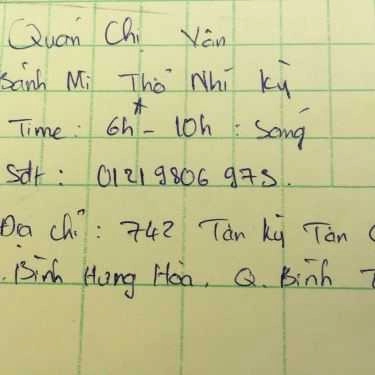 Quán Chị Vân
Bánh Mì Thổ Nhĩ Kỳ
Time: 6h - 10h : Sáng
Sđt : 01219806 975.
Địa chỉ : 742 Tân Kỳ Tân
. Bình Hưng Hòa, Q. Bình T